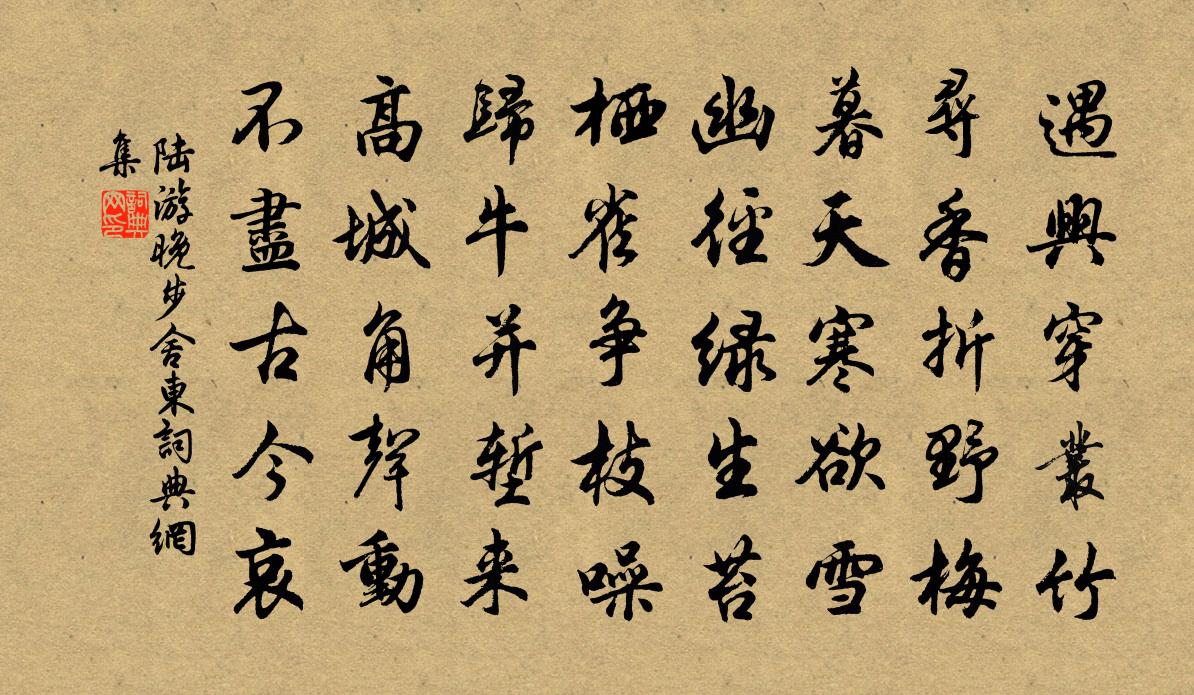 遇興穿叢竹
尋香折野梅
暮天寒欲雪
幽徑緑生苔
栖雀争枝噪
歸牛并塹来
高城角聲動
不盡古今哀
陸游晚步舍東詞典網
集
詞典
网印